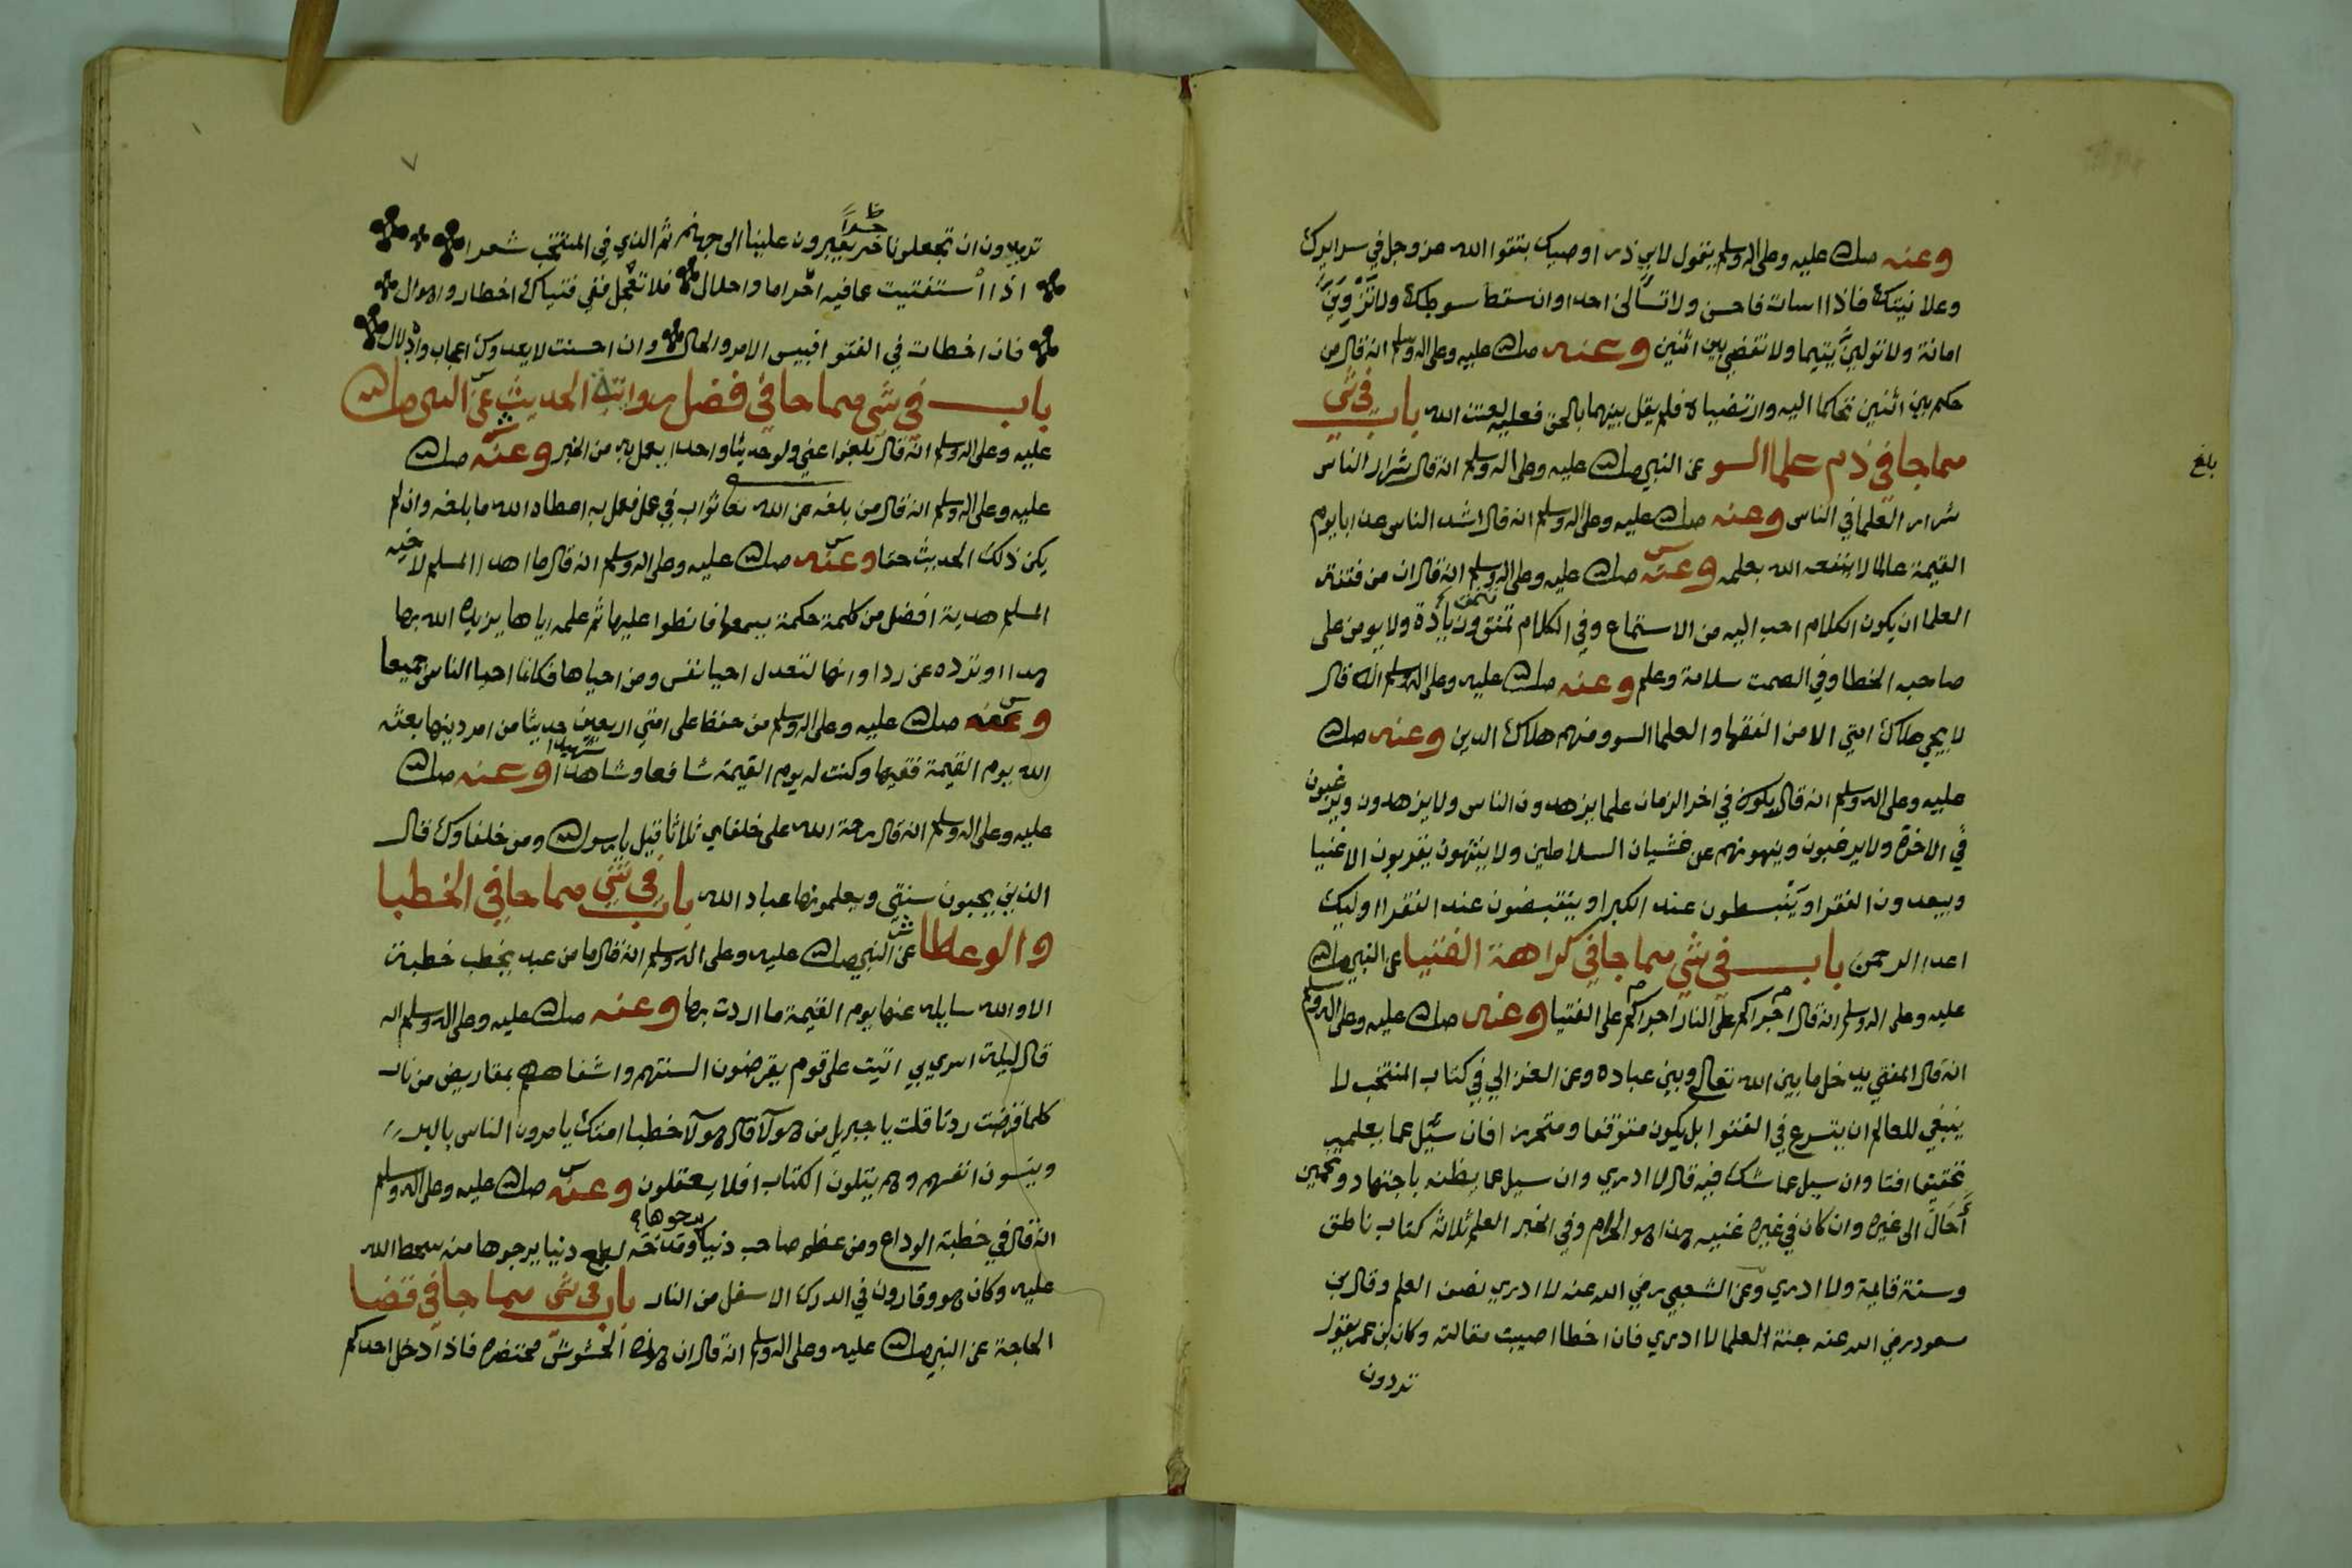 وعنه صلى الله عليه وعلى اله وسلم يقول لابي ذر اوصيك بتقوا الله عز وجل في سرايرك
وعلانيتك فاذا اسات فاحسن ولا تسألن احدا وان سقط سوطك ولا تَزْوِيَنَّ
امانة ولا تولينَّ يتيما ولا تقضي بين اثنين وعنه صلى الله عليه وعلى اله وسلم انه قال من
حكم بين اثنين تحاكما اليه وارتضياه فلم يقل بينهما بالحق فعليه لعنت الله باب في شي
مما جا في ذم علما السو عن النبي صلى الله عليه وعلى اله وسلم انه قال شرار الناس
شرار العلما في الناس وعنه صلى الله عليه وعلى اله وسلم انه قال اشد الناس عذابا يوم
القيمة عالما لا ينفعه الله بعلمه وعنه صلى الله عليه وعلى اله وسلم انه قال ان من فتنة
العلما ان يكون الكلام احب اليه من الاستماع وفي الكلام تنميق وزيادة ولا يومن على
صاحبه الخطا وفي الصمت سلامة وعلم وعنه صلى الله عليه وعلى اله وسلم انه قال
لا يجي هلاك امتي الا من الفقها والعلما السو ومنهم هلاك الدين وعنه صلى الله
عليه وعلى اله وسلم انه قال يكون في اخر الزمان علما يزهدون الناس ولا يزهدون ويرغبون
في الاخرة ولا يرغبون وينهونهم عن غشيان السلاطين ولا ينتهون يقربون الاغنيا
ويبعدون الفقرا وينبسطون عند الكبرا وينقبضون عند الفقرا اوليك
اعدا الرحمن باب في شي مما جا في كراهة الفتيا عن النبي صلى الله
عليه وعلى اله وسلم انه قال اجراكم على النار اجراكم على الفتيا وعنه صلى الله عليه وعلى اله وسلم
انه قال المفتي يدخل ما بين الله تعالى وبين عباده وعن الغزالي في كتاب المنتخب لا
ينبغي للعالم ان يتسرع في الفتوا بل يكون متوقفا ومتحرزا فان سئل عما يعلمه
تحقيقا افتا وان سيل عما شك فيه قال لا ادري وان سيل عما يظنه باجتهاد وتخمين
أحَالَ الى غيره وان كان في غيره غنيه هذا هو الحزم وفي الخبر العلم ثلاثة كتاب ناطق
وسنة قايمة ولا ادري وعن الشعبي رضي الله عنه لا ادري نصف العلم وقال بن
مسعود رضي الله عنه جنة العلما لا ادري فان اخطا اصيبت مقالته وكان بن عمر يقول
تردون
بلغ
٧
تريدون ان تجعلونا جسرا يعبرون علينا الى جهنم ثم الذي في المنتخب شعرا
اذا استفتيت عافيه احراما واحلال فلا تعجل ففي فتياك اخطار واهوال
فان اخطات في الفتوا فبيس الامر والحال وان احسنت لا يعدوك اعجاب وادلال
باب في شي مما جا في فضل رواية الحديث عن النبي صلى الله
عليه وعلى اله وسلم انه قال بلغوا عني ولو حديثا واحدا يعمل به من الخير وعنه صلى الله
عليه وعلى اله وسلم انه قال من بلغه عن الله تعا ثواب في عمل فعمل به اعطاه الله ما بلغه وان لم
يكن ذلك الحديث حقا وعنه صلى الله عليه وعلى اله وسلم انه قال ما اهدا المسلم لاخيه
المسلم هدية افضل من كلمة حكمة يسمعها فانطوا عليها ثم علمه اياها يزيده الله بها
هدا او ترده عن ردا وانها لتعدل احيا نفس ومن احياها فكانما احيا الناس جميعا
وعنه صلى الله عليه وعلى اله وسلم من حفظ على امتي اربعين حديثا من امر دينها بعثه
الله يوم القيمة فقيها وكنت له يوم القيمة شافعا وشاهدا شهيدا وعنه صلى الله
عليه وعلى اله وسلم انه قال رحمة الله على خلفاي ثلاثا قيل يا رسول الله ومن خلفاوك قال
الذين يحيون سنتي ويعلمونها عباد الله باب في شي مما جا في الخطبا
والوعاظا عن النبي صلى الله عليه وعلى اله وسلم انه قال ما من عبد يخطب خطبة
الا والله سايله عنها يوم القيمة ما اردت بها وعنه صلى الله عليه وعلى اله وسلم انه
قال ليلة اسري بي اتيت على قوم يقرضون السنتهم واشفاههم بمقاريض من نار
كلما قرضت ردت قلت يا جبريل من هولا قال هولا خطبا امتك يامرون الناس بالبر
وينسون انفسهم وهم يتلون الكتاب افلا يعقلون وعنه صلى الله عليه وعلى اله وسلم
انه قال في خطبة الوداع ومن عظم صاحب دنيا ومدحه لطمع دنيا يرجوها منه سخط الله
عليه وكان هو وقارون في الدرك الاسفل من النار باب في شي مما جا في قضا
الحاجة عن النبي صلى الله عليه وعلى اله وسلم انه قال ان هذه الحشوش محتضره فاذا دخل احدكم